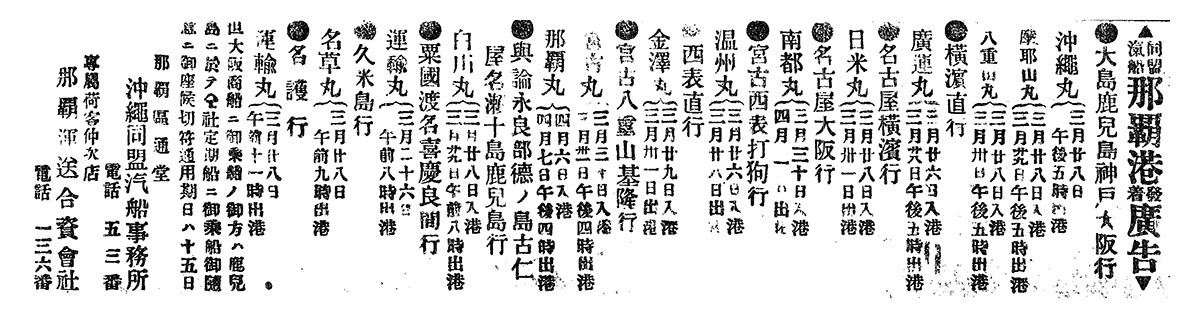 ▲同盟汽船那覇港發着廣告▼
●大島鹿兒島神戸大阪行
沖繩丸 三月廿八日 午後五時出港
摩耶山丸 三月廿八日入港 三月廿九日午後五時出港
八重山丸 三月廿八日入港 三月卅日午後五時出港
●橫濱直行
廣運丸 三月廿六日入港 三月廿八日午後五時出港
●名古屋橫濱行
日米丸 三月廿八日入港 三月卅一日出港
●名古屋大阪行
南都丸 三月三十日入港 四月一日出港
●宮古西表打狗行
溫州丸 三月廿六日入港 三月廿八日出港
●西表直行
金澤丸 三月廿九日入港 三月卅一日出港
●宮古八重山基隆行
宮古丸 三月三十日入港 三月卅一日午後四時出港
那覇丸 四月六日入港 四月七日午後四時出港
●與論永良部德ノ島古仁
屋名瀨十島鹿兒島行
白川丸 三月廿八日入港 三月廿九日午前八時出港
●粟國渡名喜慶良間行
運輸丸 三月二十六日 午前八時出港
●久米島行
名草丸 三月廿八日 午前九時出港
●名護行
運輸丸 三月廿八日 午前十一時出港
但大阪商船ニ御乘船ノ御方ハ鹿兒
島ニ於テ仝社定期船ニ御乘船御隨
意ニ御座候切符通用期日ハ十五日
那覇區通堂
沖繩同盟汽船事務所
電話 五三番
專屬荷客仲次店
那覇運送合資會社
電話 一三六番